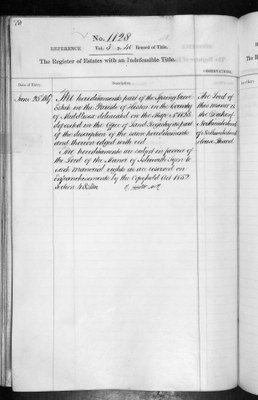 No. 1128
REFERENCE Vol. p. Record of Title.
The Register of Estates with an Indefeasible Title.
OBSERVATIONS.
Date of Entry. Description.
June 25 The hereditaments part of the Spring Grove
Estate in the Parish of Heston in the County
of Middlesex delineated on the Map
deposited in the Office of Land Registry as part
of the description of the same hereditaments
and thereon edged with red.
The hereditaments are subject in favour of
the Lord of the Manor of Isleworth Syon to
such manorial rights as are reserved on
Enfranchisements by the Copyhold Act 1852
Section 48
The Lord of
this manor is
the Duke of
Northumberland
of Northumberland
House Strand